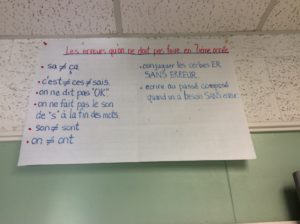 Les erreurs qu'on ne doit pas faire en 7ième année
• sa ≠ ça
• c'est ≠ ces ≠ sais.
• on ne dit pas "OK"
• on ne fait pas le son
de "s" à la fin des mots.
• son ≠ sont
• on ≠ ont
• conjuguer les verbes ER
SANS ERREUR.
• écrire au passé composé
quand on a besoin SANS erreur.